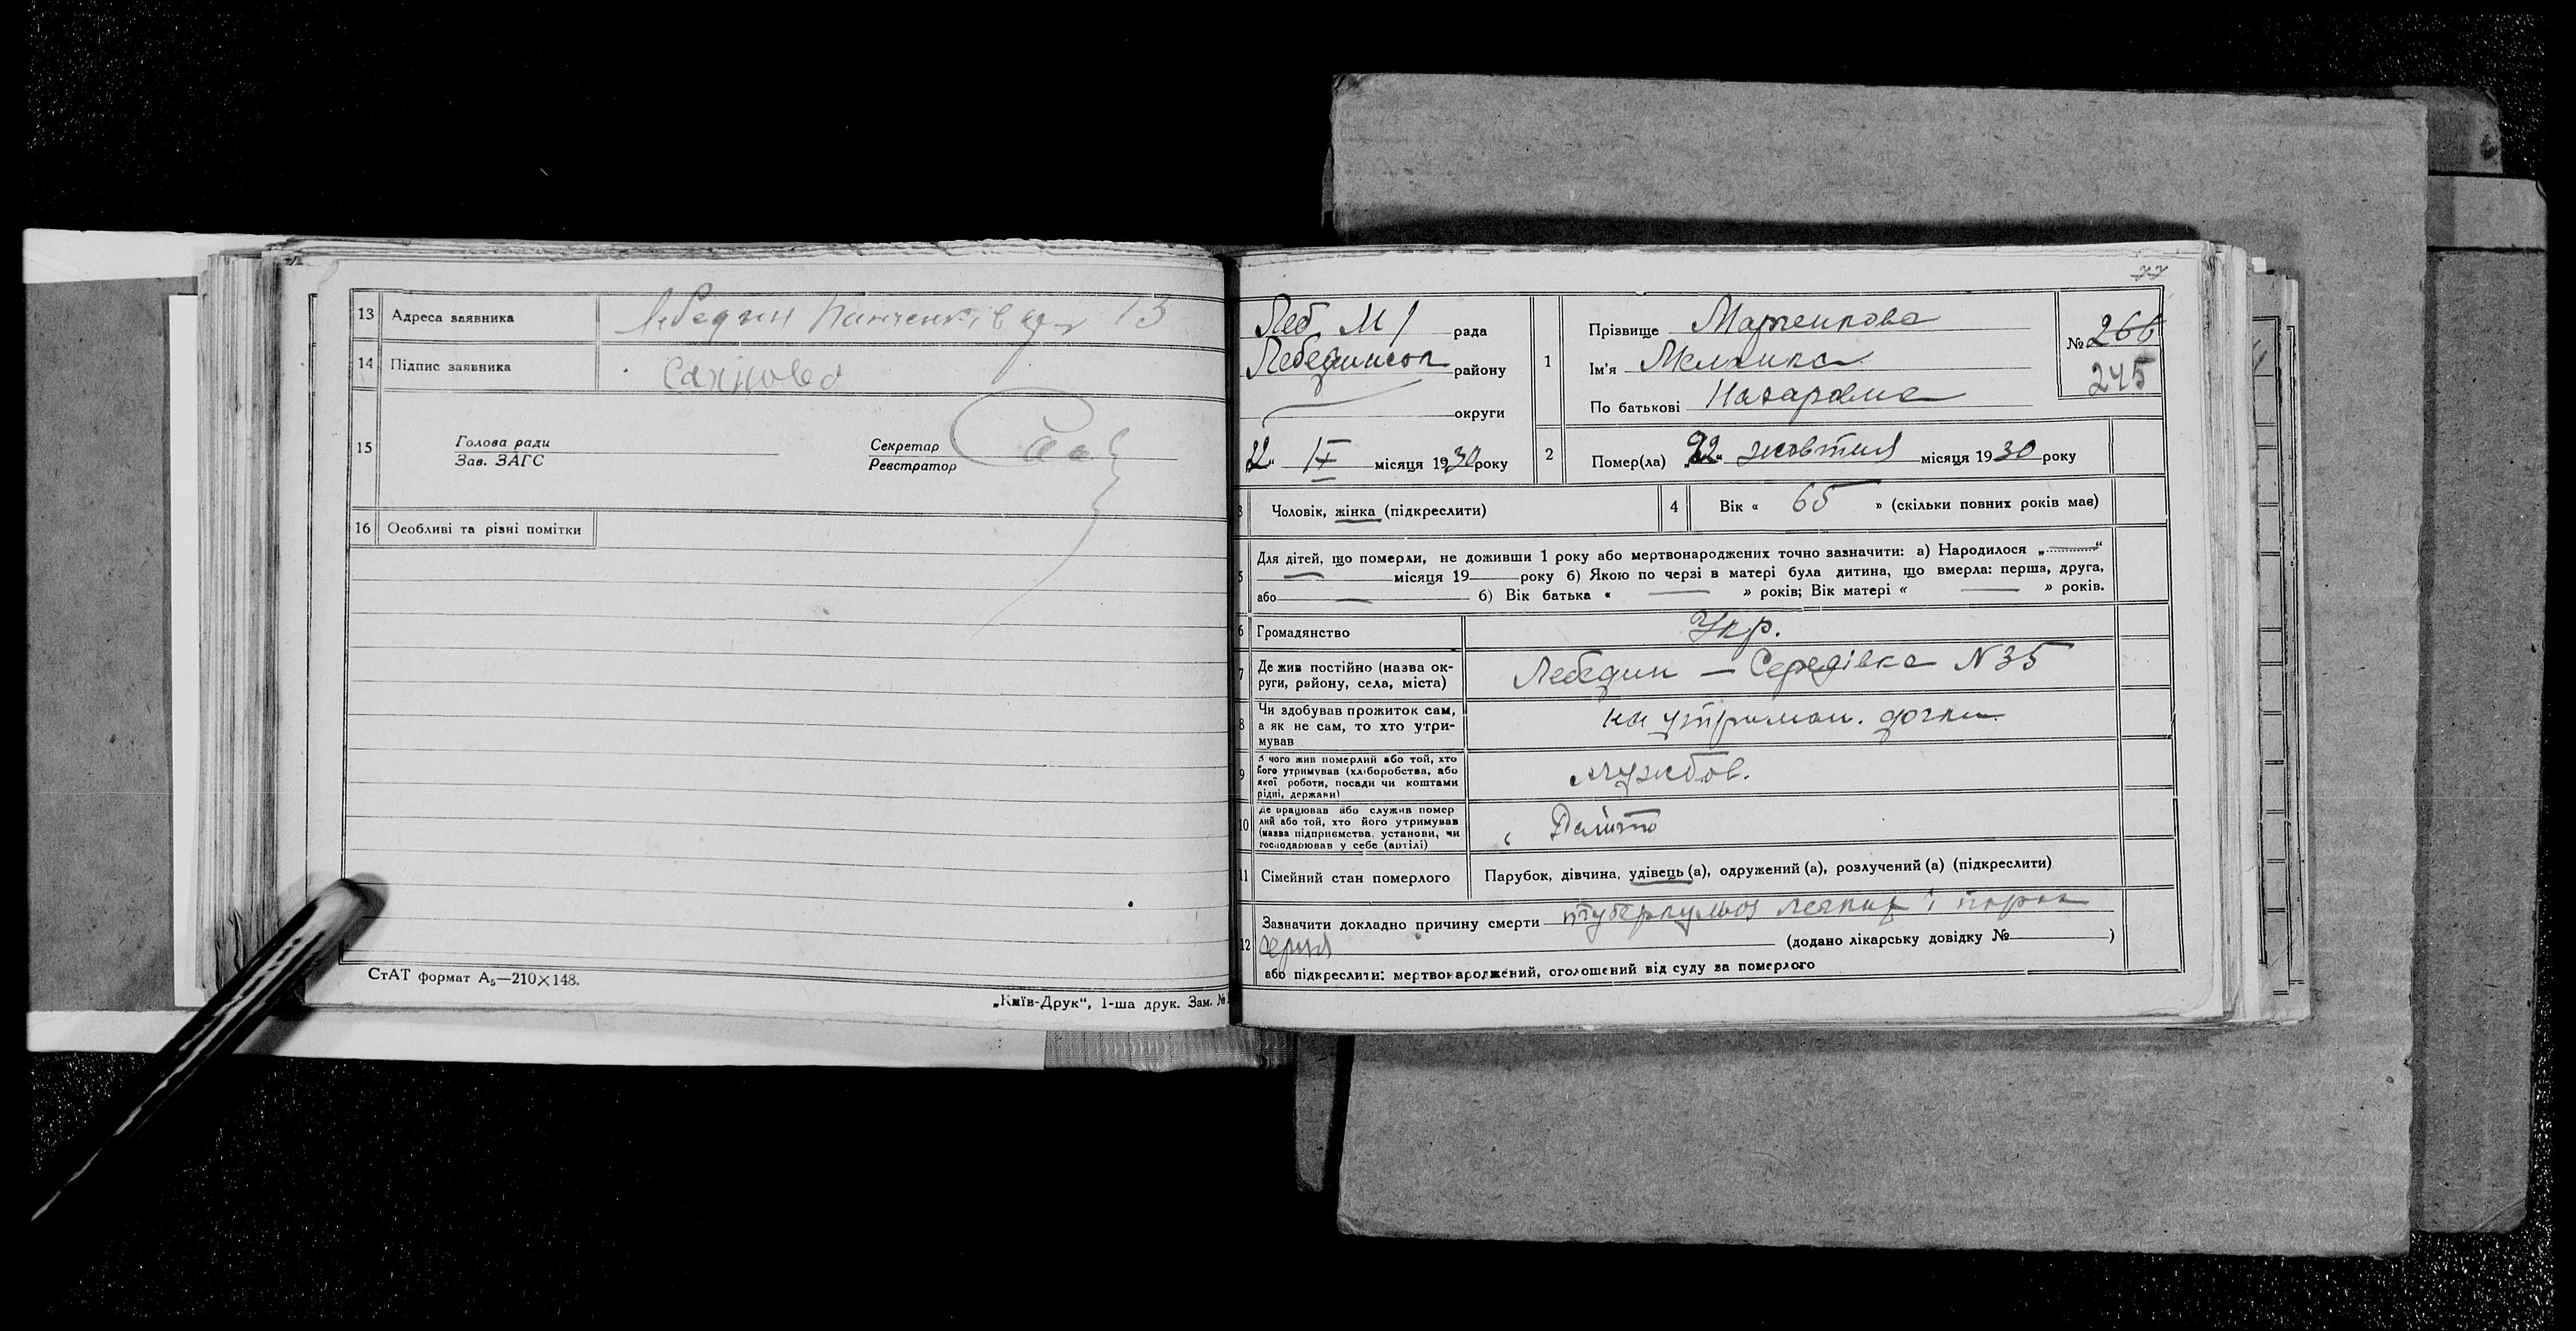 13 Адреса заявника Лебедин Панченків 13
14 Підпис заявника
15 Голова ради
Зав. ЗАГС
Секретар
Реєстратор
16 Особливі та різні помітки
СтАТ формат А₅—210×148.
„Київ-Друк“, 1-ша друк. Зам. №
77
Леб. М 1 рада
Лебединськ району
округи
22“ IX місяця 1930 року
1 Прізвище Мартенкова
Ім'я Меланка
По батькові Назаровна
№ 266
245
2 Помер(ла) „22“ жовтня місяця 1930 року
3 Чоловік, жінка (підкреслити)
4 Вік « 65 » (скільки повних років має)
5 Для дітей, що померли, не доживши 1 року або мертвонароджених точно зазначити: а) Народилося „ — “
— місяця 19 — року б) Якою по черзі в матері була дитина, що вмерла: перша, друга,
або — б) Вік батька « — » років; Вік матері « — » років.
6 Громадянство Укр.
7 Де жив постійно (назва округи, району, села, міста) Лебедин — Середівка N 35
8 Чи здобував прожиток сам,
а як не сам, то хто утримував на утриман. дочки
9 З чого жив померлий або той, хто
його утримував (хліборобства, або
якої роботи, посади чи коштами
рідні, держави) службов.
10 Де працював або служив померлий або той, хто його утримував
(назва підприємства, установи, чи
господарював у себе (артілі)
11 Сімейний стан померлого Парубок, дівчина, удівець (а), одружений (а), розлучений (а) (підкреслити)
12 Зазначити докладно причину смерти туберкульоз легких і порок
серця (додано лікарську довідку № )
або підкреслити: мертвонароджений, оголошений від суду за померлого